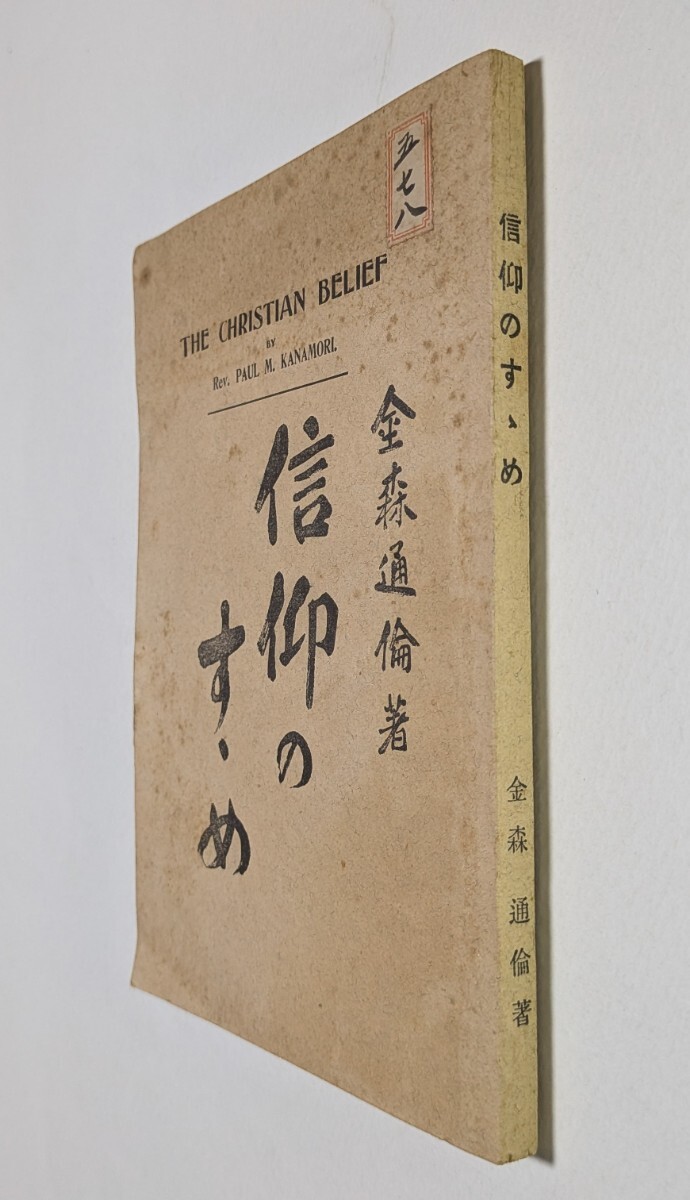 五七八
THE CHRISTIAN BELIEF
BY
Rev. PAUL M. KANAMORI.
金森通倫著
信仰の
すゝめ
信仰のすゝめ
金森通倫著